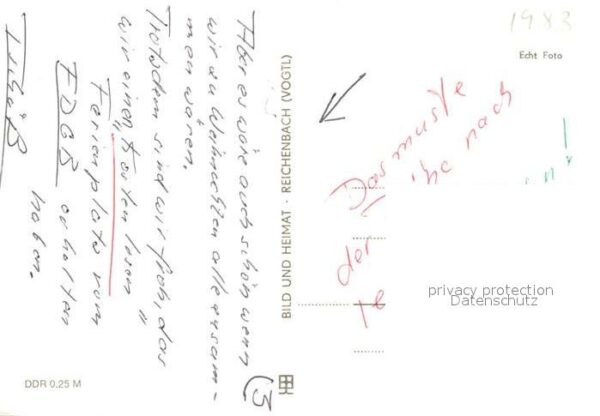 1983
Echt Foto
Aber es wäre auch schön wenn
wir zu Weihnachten alle zusam-
men wären.
Trotzdem sind wir froh, das
wir einen "Festen losen"
Ferienplatz vom
FDGB erhalten
haben.
Tschüß
(3
BILD UND HEIMAT · REICHENBACH (VOGTL)
Das musste
ihc nach
der
te
n!
privacy protection
Datenschutz
DDR 0,25 M